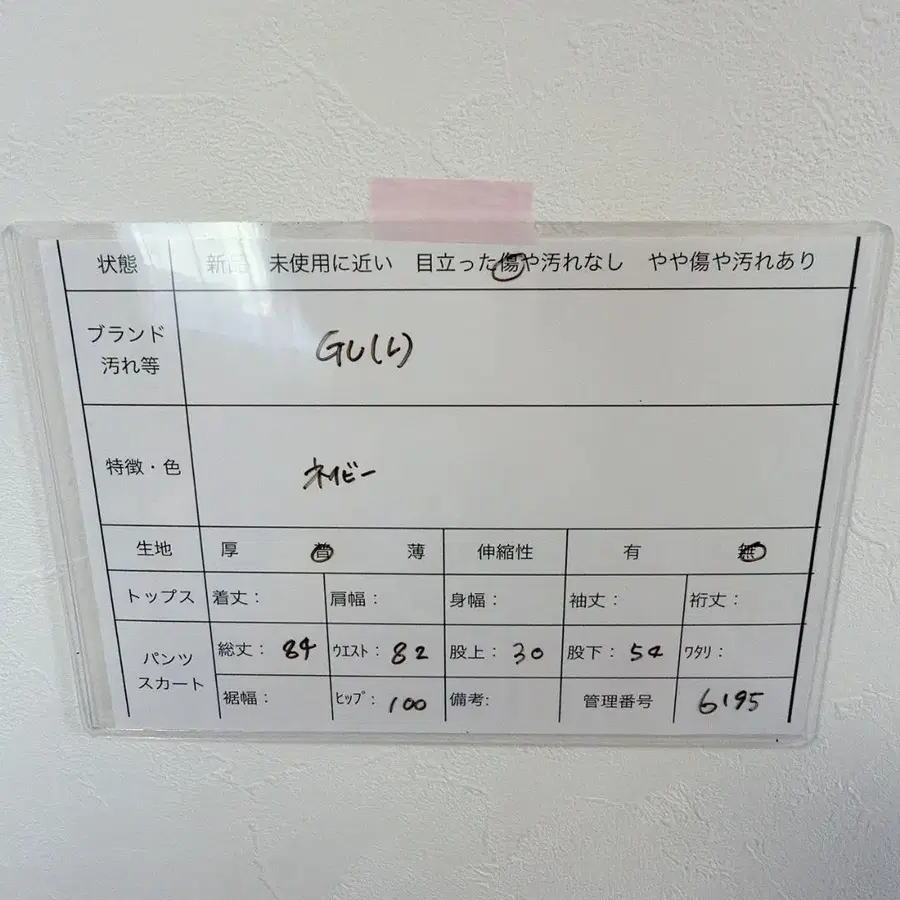 状態 新品 未使用に近い 目立った傷や汚れなし やや傷や汚れあり
ブランド
汚れ等
GU(L)
特徴・色 ネイビー
生地 厚 普 薄 伸縮性 有 無
トップス 着丈： 肩幅： 身幅： 袖丈： 裄丈：
パンツ
スカート
総丈：84 ｳｴｽﾄ：82 股上：30 股下：54 ﾜﾀﾘ：
裾幅： ﾋｯﾌﾟ：100 備考: 管理番号 6195